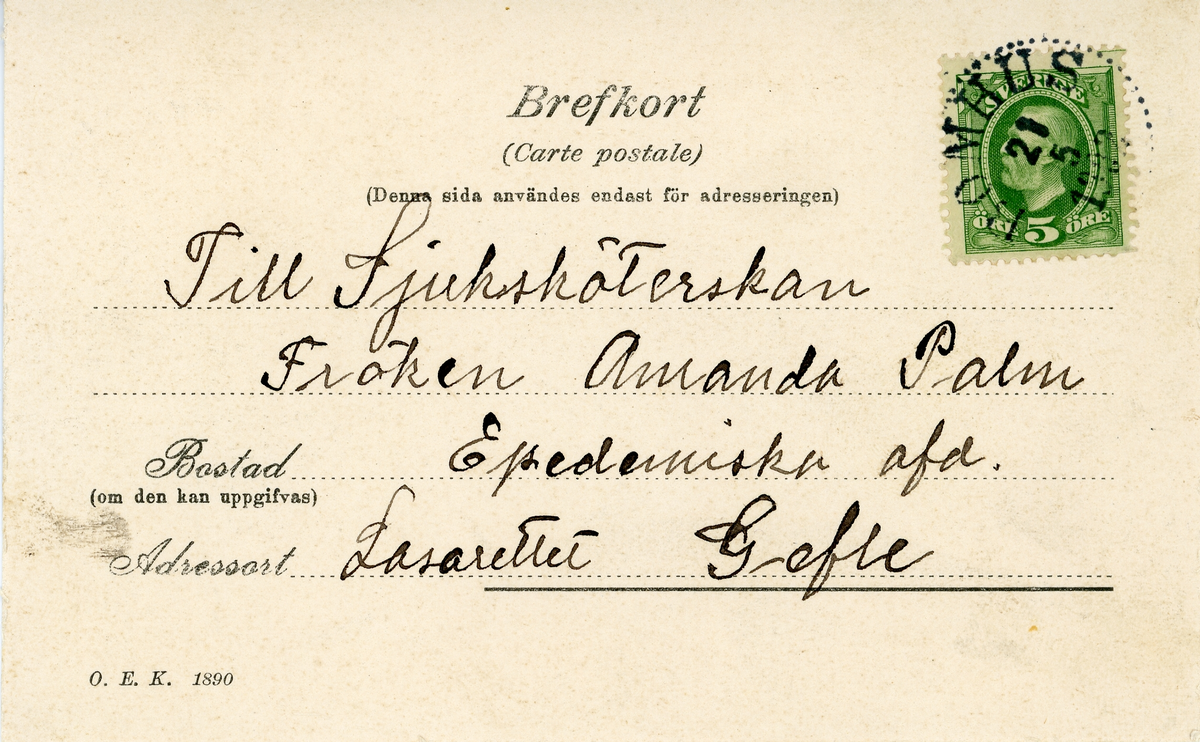 Brefkort
(Carte postale)
(Denna sida användes endast för adresseringen)
SVERIGE
ÖRE 5 ÖRE
TOMHUS
21
5
Till Sjuksköterskan
Fröken Amanda Palm
Bostad Epedemiska afd.
(om den kan uppgifvas)
Adressort Lasarettet Gefle
O. E. K. 1890